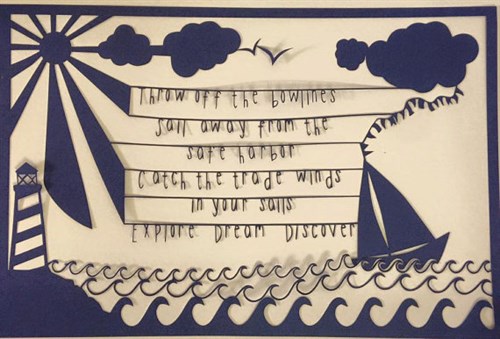 Throw off the bowlines
Sail away from the
safe harbor
Catch the trade winds
in your sails
Explore Dream Discover